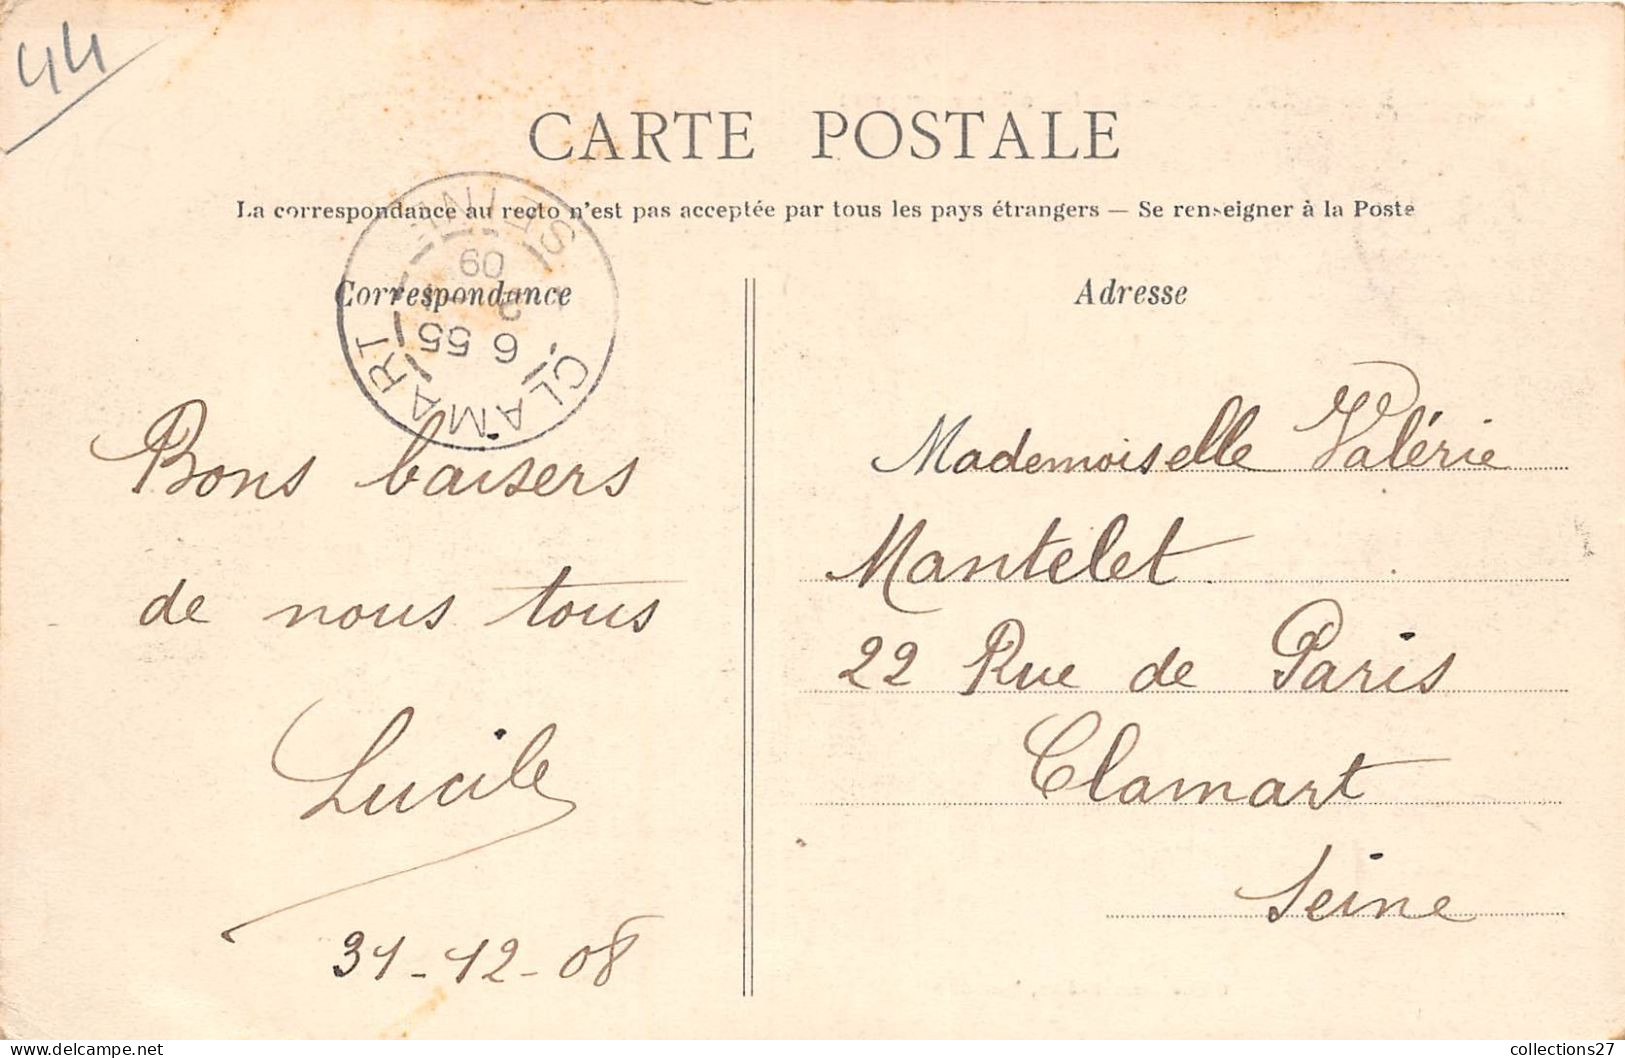 44
CARTE POSTALE
La correspondance au recto n'est pas acceptée par tous les pays étrangers — Se renseigner à la Poste
Correspondance
Bons baisers
de nous tous
Lucile
31-12-08
Adresse
Mademoiselle Valérie
Mantelet
22 Rue de Paris
Clamart
Seine
CLAMART
6 55
09
SEINE
collections27